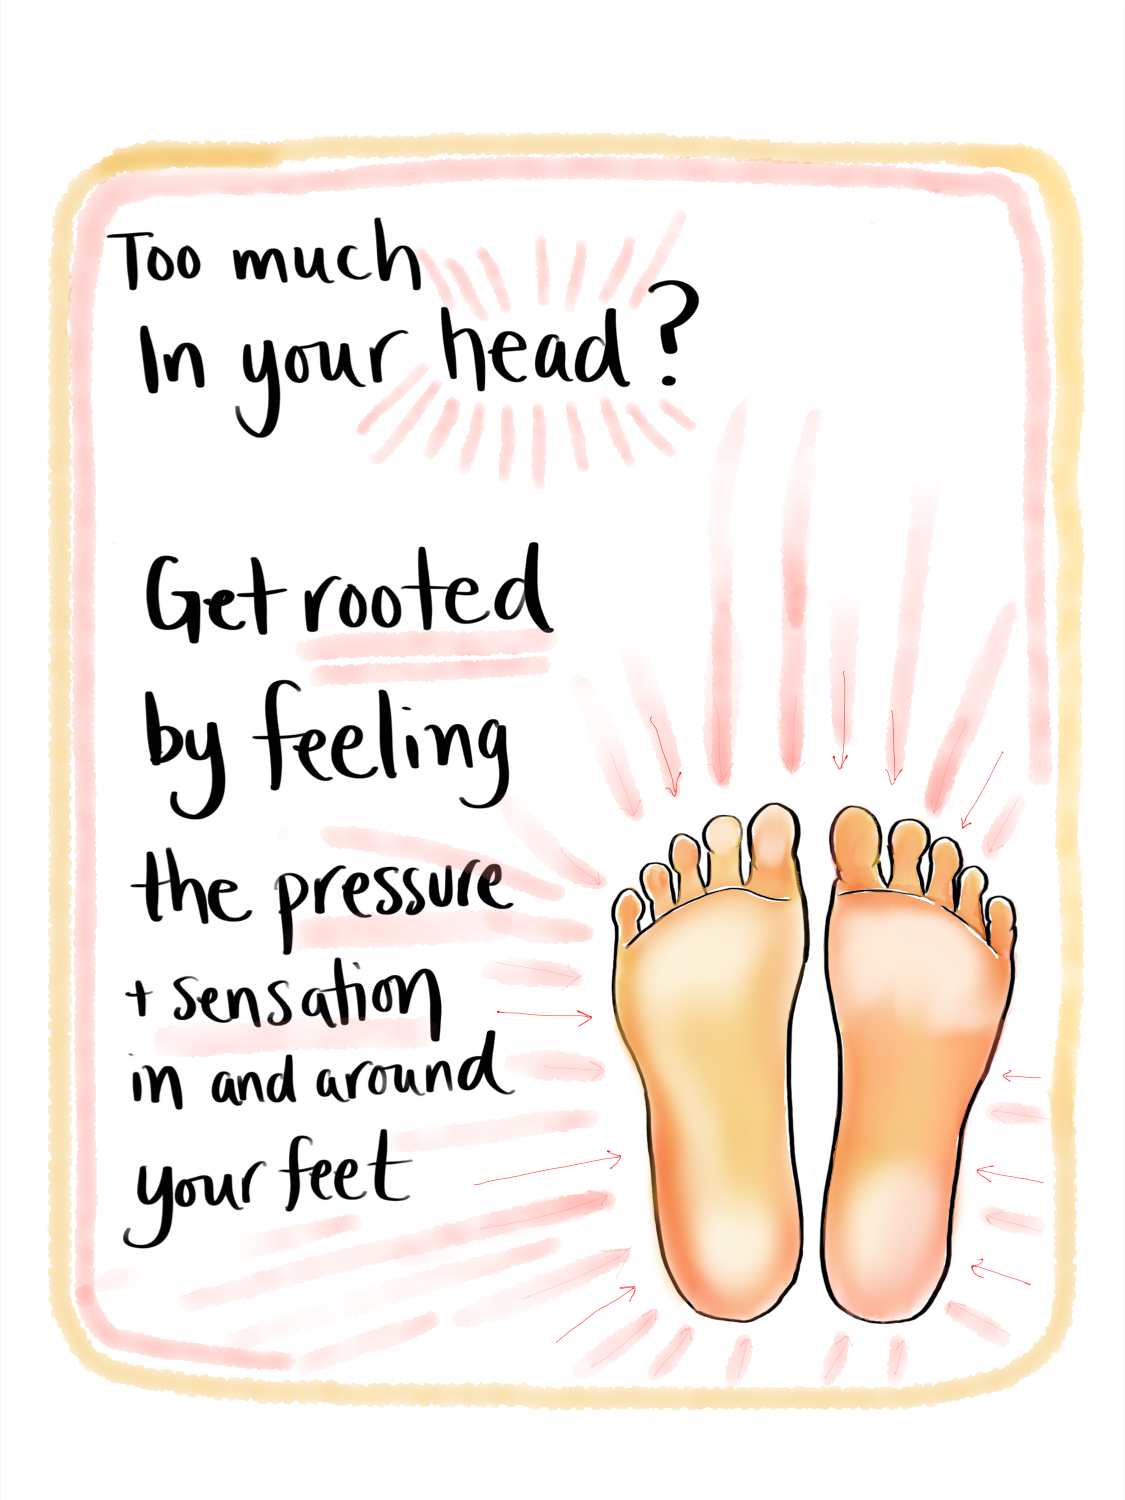 Too much
In your head?
Get rooted
by feeling
the pressure
+ sensation
in and around
your feet